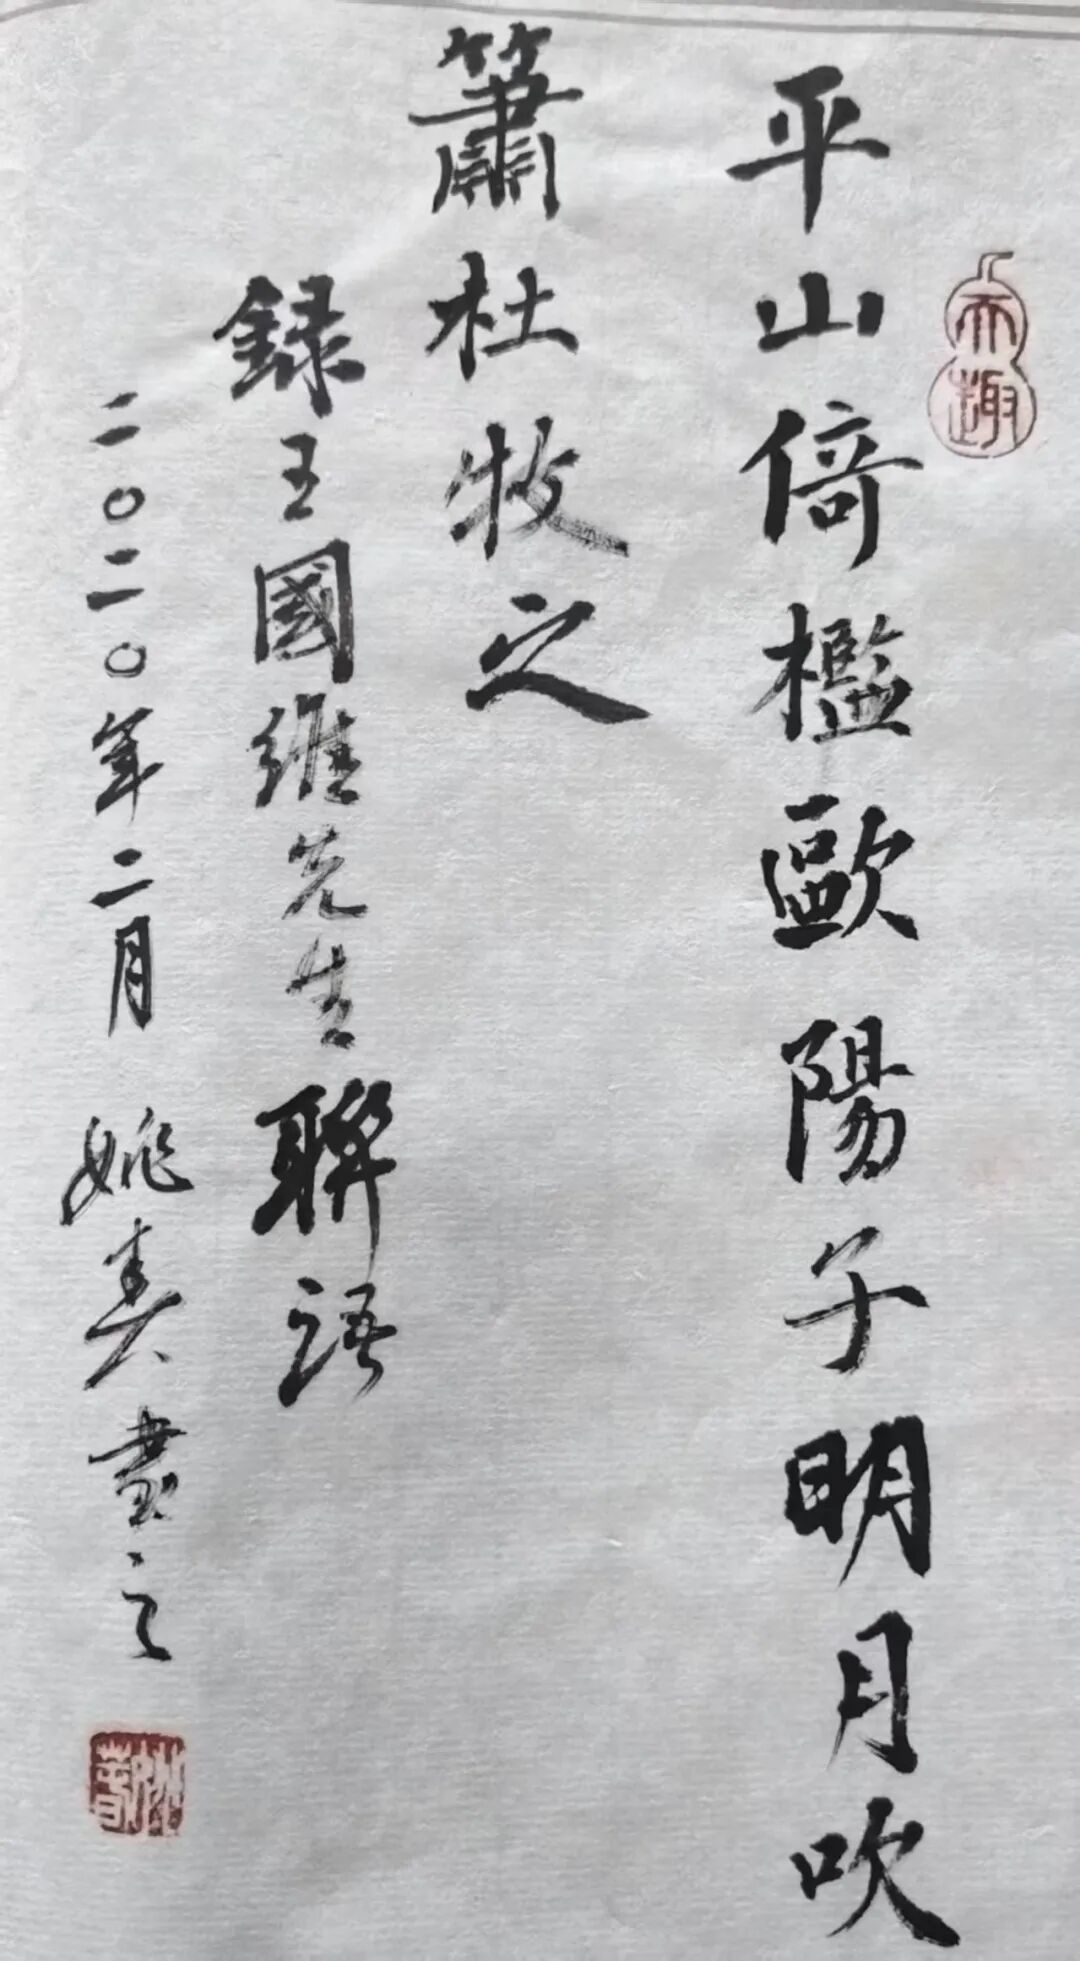 平山倚檻歐陽子明月吹
簫杜牧之
録王國維先生聯語
二〇二〇年二月 姚春書之
天趣